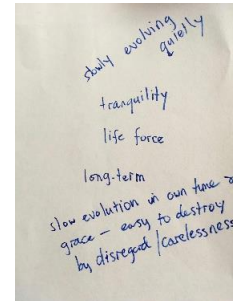 slowly evolving
quietly
tranquility
life force
long-term
slow evolution in own time &
grace – easy to destroy
by disregard / carelessness